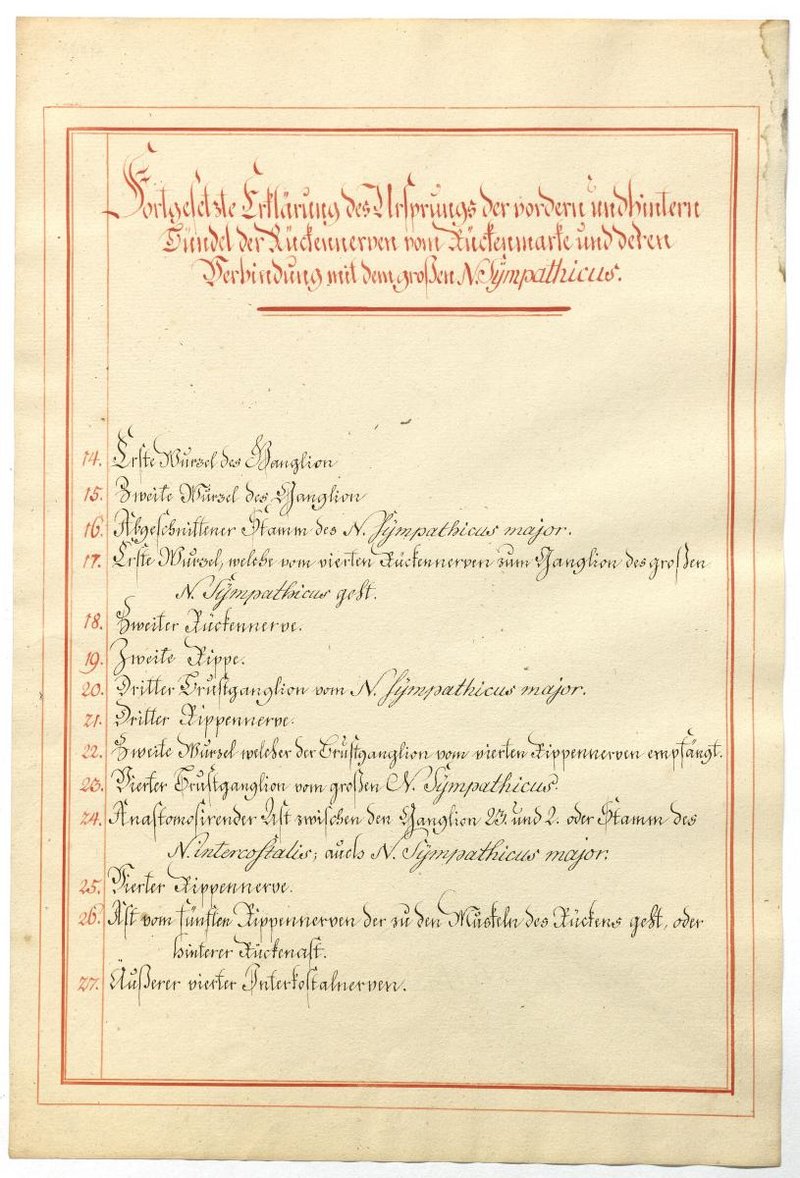 Fortgesetzte Erklärung des Ursprungs der vordern und hintern
Bündel der Rückennerven vom Rückenmarke und deren
Verbindung mit dem großen N. Sÿmpathicus.
14. Erste Wurzel des Ganglion
15. Zweite Wurzel des Ganglion
16. Abgeschnittener Stamm des N. Sÿmpathicus major.
17. Erste Wurzel, welche vom vierten Rückennerven zum Ganglion des großen
N. Sÿmpathicus geht.
18. Zweiter Rückennerve.
19. Zweite Rippe.
20. Dritter Brustganglion vom N. Sÿmpathicus major.
21. Dritter Rippennerve.
22. Zweite Wurzel welcher der Brustganglion vom vierten Rippennerven empfängt.
23. Vierter Brustganglion vom großen N. Sÿmpathicus.
24. Anastomosirender Ast zwischen den Ganglion 23. und 2. oder Stamm des
N. intercostalis; auch N. Sÿmpathicus major.
25. Vierter Rippennerve.
26. Ast vom fünften Rippennerven der zu den Muskeln des Rückens geht, oder
hinterer Rückenast.
27. Äußerer vierter Interkostalnerven.